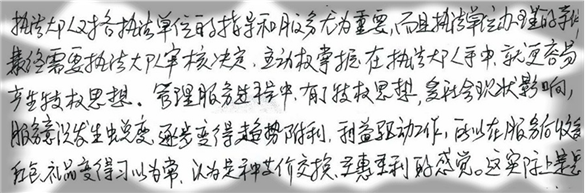 执法大队对各执法单位的指导和服务尤为重要,而且执法单位办理的案
最终需要执法大队审核决定,主动权掌握在执法大队手中,就更容易
产生特权思想。管理服务过程中,有了特权思想,受社会现状影响,
服务意识发生蜕变,逐步变得趋势附利,利益驱动工作,所以在服务后收受
红包礼品变得习以为常,认为是种等价交换、互惠互利的感觉。这实际上是